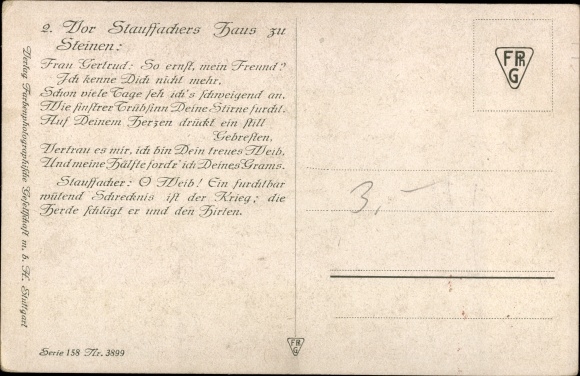 2. Vor Stauffachers Haus zu
Steinen:
Frau Gertrud: So ernst, mein Freund?
Ich kenne Dich nicht mehr.
Schon viele Tage seh ich's schweigend an,
Wie finstrer Trübsinn Deine Stirne furcht.
Auf Deinem Herzen drückt ein still
Gebresten.
Vertrau es mir, ich bin Dein treues Weib,
Und meine Hälfte fordr' ich Deines Grams.
Stauffacher: O Weib! Ein furchtbar
wütend Schrecknis ist der Krieg; die
Herde schlägt er und den Hirten.
Serie 158 Nr. 3899
Verlag Farbenphotographische Gesellschaft m. b. H. Stuttgart
FPR
G
3,-
FPR
G